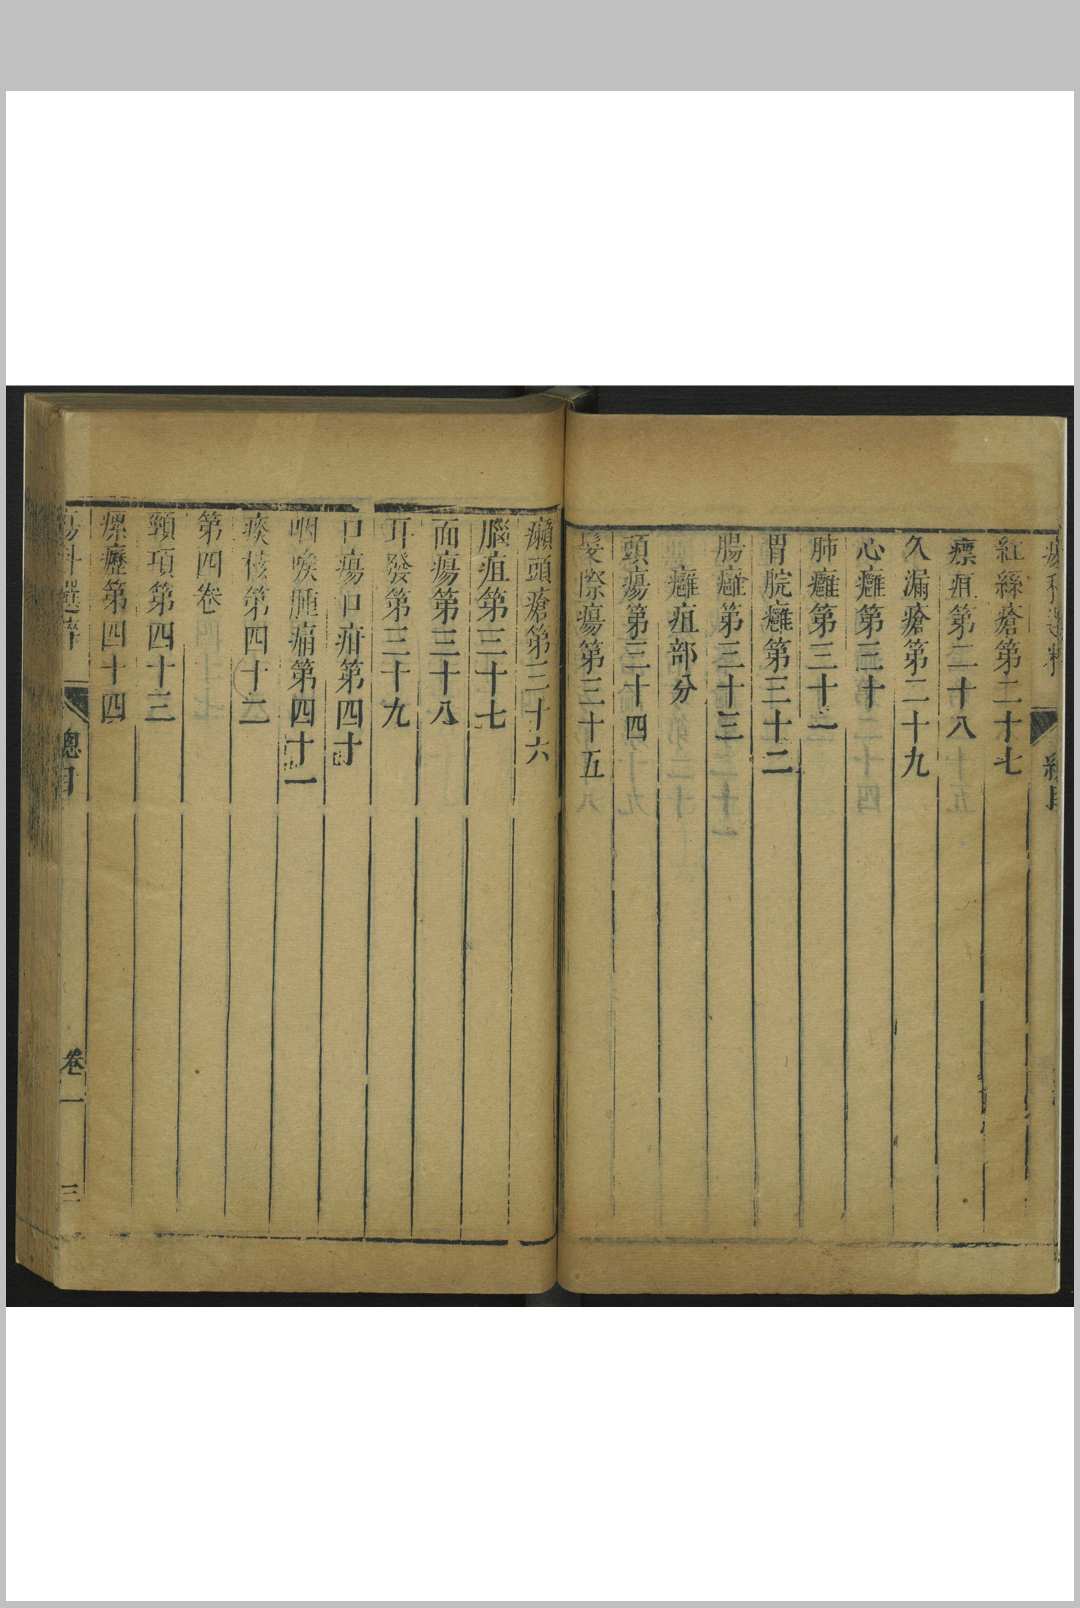 紅絲瘡第二十七
瘭疽第二十八
久漏瘡第二十九
心癰第三十
肺癰第三十一
胃脘癰第三十二
腸癰第三十三
癰疽部分
頭瘍第三十四
髮際瘍第三十五
癩頭瘡第三十六
腦疽第三十七
面瘍第三十八
耳發第三十九
口瘍口疳第四十
咽喉腫痛第四十一
痰核第四十二
第四卷
頸項第四十三
瘰癧第四十四
瘍科選粹 總目 卷一 三